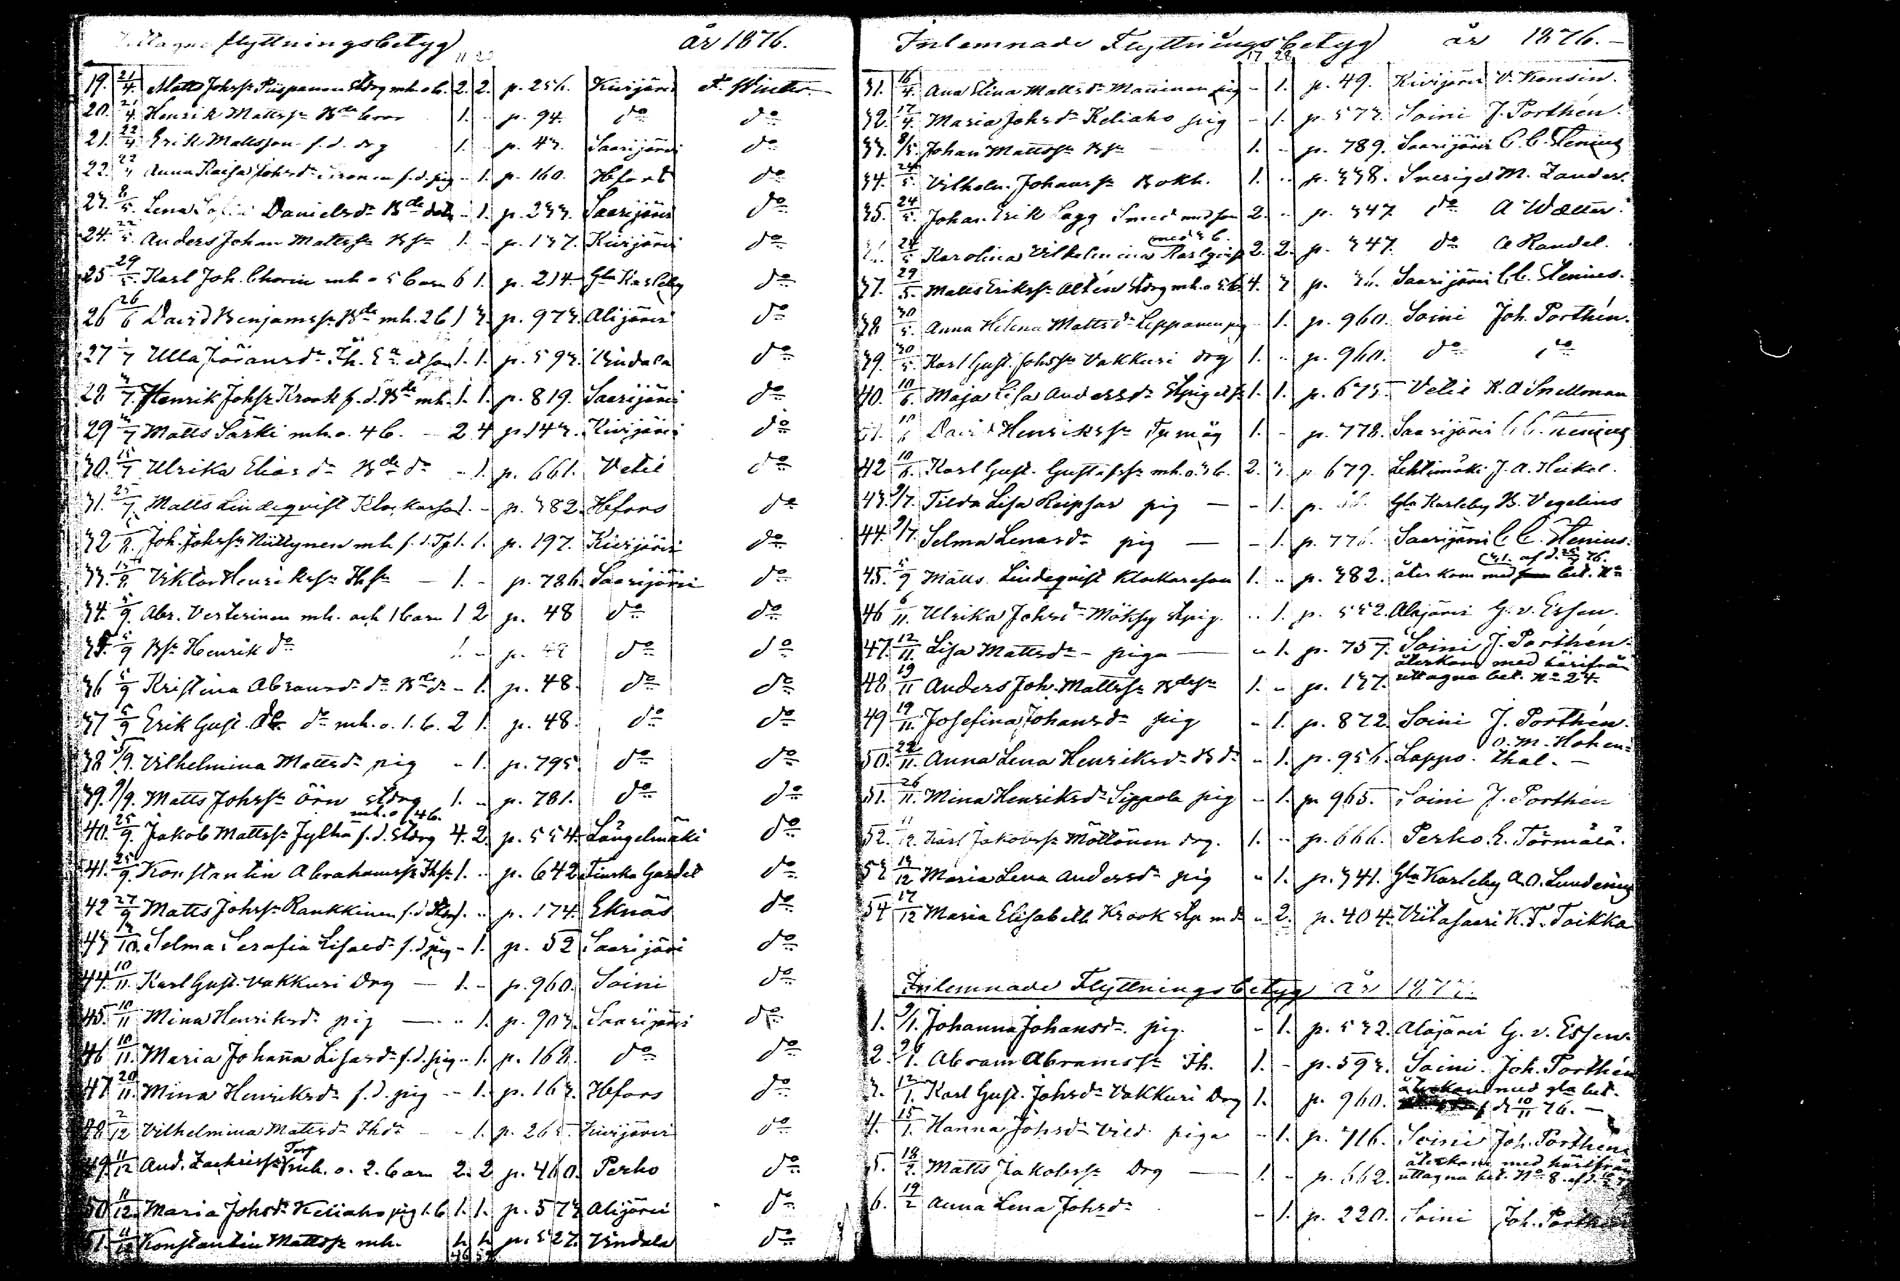 flyttningsbetyg år 1876.
19. 21/4. Matts Johss: Piispanen Stdrg mh. o b. 2. 2. p. 256. Kivijärvi F. Winter
20. 21/4 Henrik Mattss: Bde bror 1. - p. 94. do do
21. 22/4 Erik Mattsson f.d. drg 1. - p. 43. Saarijärvi do
22. 22/4 Anna Kaisa Johsd: f.d. pig - 1. p. 160. Hfors do
23. 8/5. Lena Sofia Danielsd: Bde dotr - 1. p. 233. Saarijärvi do
24. 22/5. Anders Johan Mattss: Bss: 1. - p. 137. Kivijärvi do
25 29/5. Karl Joh. Chorin mh o 5 barn 6 1. p. 214. Gla Karleby do
26 26/6 David Benjamss: Bde mh. 2 b 1 3. p. 973. Alajärvi do
27 /7 Ulla Jöransd: Th. Ea et son 1. 1. p. 593. Vindala do
28 3/7. Henrik Johss: Krook f.d. Bde mh. 1. 1. p. 819. Saarijärvi do
29 3/7 Matts Särki mh. o. 4 b. - 2 4 p. 143. Kivijärvi do
30. 15/7 Ulrika Eliasd: Bde dr - 1. p. 661. Vetil do
31. 25/7. Matts Lindeqvist Klockarson 1. - p. 382. Hfors do
32 /8. Joh. Johss: Niittynen mh f.d. Tp 1. 1. p. 197. Kivijärvi do
33. 15/8. Viktor Henrikss: Hss: - 1. - p. 786. Saarijärvi do
34. 5/9. Abr. Vesterinen mh. och 1 barn 1 2 p. 48 do do
35. 5/9 Bss: Henrik do 1. - p. 48 do do
36 5/9 Kristina Abramsd: do Bde dr - 1. p. 48. do do
37 5/9 Erik Gust. do mh. o. 1. b. 2 1. p. 48. do do
38 5/9. Vilhelmina Mattsd: pig - 1. p. 795. do do
39. 9/9. Matts Johss: Örn stdrg 1. - p. 781. do do
mh. o 4 b.
40. 25/9. Jakob Mattss: Jylhä f.d. Stdrg 4. 2. p. 554. Längelmäki do
41. 25/9. Konstantin Abrahamss: Hss: 1. - p. 642 Finska Gardet do
42 27/9 Matts Johss: Rankkinen f.d. 1. - p. 174. Eknäs do
43 /10. Selma Serafia Lisaed: f.d. pig - 1. p. 52 Saarijärvi do
44. 10/11. Karl Gust. Vakkuri Drg — 1. - p. 960. Soini do
45. 10/11 Mina Henriksd: pig — - 1. p. 903. Saarijärvi do
46 10/11. Maria Johanna Lisasd: f.d. pig - 1. p. 168. do do
47 20/11. Mina Henriksd: f.d. pig - 1. p. 163. Hfors do
48 2/12 Vilhelmina Mattsd: Thdr - - 1. p. 265. Kivijärvi do
49. 11/12 And. Zachriss: Torp mh. o. 2. barn 2. 2 p. 460. Perho do
50 11/12. Maria Johsd: Keliaho pig 1. b 1. 1. p. 573 Alajärvi do
51. 11/12 Konstantin Mattss: mh. 1. 1. p. 527. Vindala do
Inlemnade Flyttningsbetyg år 1876.
31. 16/4. Ana Stina Mattsd: Manninen pig - 1. p. 49. Kivijärvi V. Konsin.
32. 17/4. Maria Johsd: Keliaho pig - 1. p. 573. Soini J. Porthén.
33. 8/5. Johan Mattss: Bss: 1. - p. 789. Saarijärvi C. C. Stenius
34. 24/5 Vilhelm Johanss: Bokh. 1. - p. 338. Sverige M. Zander.
35. 24/5 Johan Erik Lagg Smed med son 2. - p. 347 do A Wætter.
med 3 b.
24/5 Karolina Vilhelmina Karlqvist 2. 2. p. 347. do A Randel.
37. 29/5. Matts Erikss: Altén Stdrg mh. o 5 b. 4. 3 p. 31. Saarijärvi C C. Stenius.
38 30/5. Anna Helena Mattsd: Leppänen pig - 1. p. 960. Soini Joh. Porthén.
39. 30/5. Karl Gust. Johss: Vakkuri drg 1. - p. 960. do do
40. 10/6. Maja Lisa Andersd: Stpig et s: 1. 1. p. 675 Vetil K. A Snellman
41. 10/6 David Henrikss: Fr måg 1. - p. 778. Saarijärvi C. C. Stenius
42 10/6. Karl Gust. Gustafss: mh. o. 3 b. 2. 3. p 679. Lehtimäki J. A. Heikel.
43. 9/7. Tilda Lisa Reipsar pig — - 1. p. Gla Karleby B. Vegelius
44. 9/7. Selma Lenasd: pig — - 1. p. 776. Saarijärvi C C. Stenius.
(31. af d. 25/7 76.
45. 5/9 Matts Lindeqvist Klockareson 1. - p. 382. åter kom med bet. No
46 6/11. Ulrika Johsd: Möksy stpig. - 1. p. 552. Alajärvi G. v. Essen.
47. 12/11. Lisa Mattsd: - piga — - 1. p. 757. Soini J. Porthén.
återkom med härifrån
48 19/11 Anders Joh. Mattss: Bdess: 1. - p. 137. uttagna bet. No 24.
49 19/11. Josefina Johansd: pig - 1. p. 872. Soini J. Porthén.
O. M. Hohen=
50. 22/11. Anna Lena Henriksd: Bd: - 1. p. 956. Lappo. thal. —
51. 26/11. Mina Henriksd: Sippola pig - 1. p. 965. Soini J. Porthén
52. 11/12. Karl Jakobss: Möttönen drg. 1. - p. 666. Perho E. Törmälä.
53 13/12 Maria Lena Andersd: pig - 1. p. 341. Gla Karleby A. O. Lundenius
54 17/12 Maria Elisabeth Krook stp m dr - 2. p. 404. Viitasaari K. F. Toikka
Inlemnade Flyttningsbetyg år 1877.
1. 9/1. Johanna Johansd: pig. - 1. p. 532. Alajärvi G. v. Essen.
2. 9/1. Abram Abramss: Th. 1. - p. 593. Soini. Joh. Porthén
återkom med gla bet.
3. 12/1. Karl Gust. Johsd: Vakkuri Drg 1. p. 960. f d 10/11 76. —
4. 15/1. Hanna Johsd: Vild piga - 1. p. 716. Soini Joh. Porthén
återkom med härifrån
5. 18/2. Matts Jakobss: Drg — 1. - p. 662. uttagna bet. No 8. af d.
6. 19/2 Anna Lena Johsd: - 1. p. 220. Soini Joh. Porthén